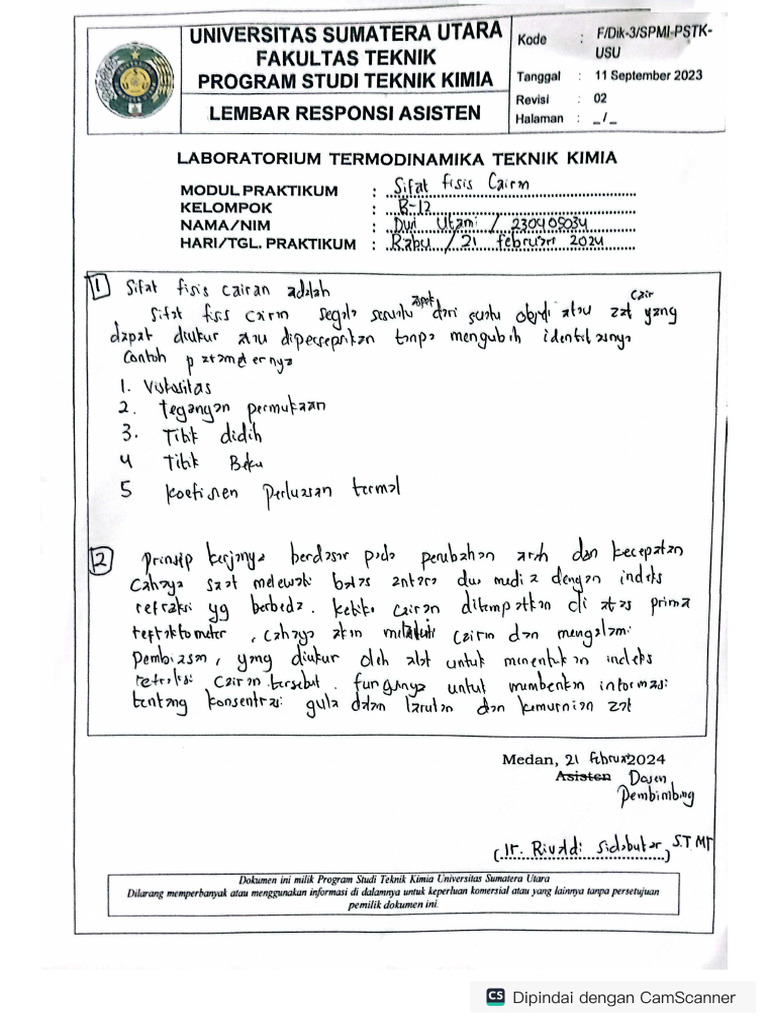 UNIVERSITAS SUMATERA UTARA
FAKULTAS TEKNIK
PROGRAM STUDI TEKNIK KIMIA
LEMBAR RESPONSI ASISTEN
Kode : F/Dik-3/SPMI-PSTK-USU
Tanggal : 11 September 2023
Revisi : 02
Halaman : _/_
LABORATORIUM TERMODINAMIKA TEKNIK KIMIA
MODUL PRAKTIKUM : Sifat fisis Cairan
KELOMPOK : B-12
NAMA/NIM : Dwi Utami / 230405034
HARI/TGL. PRAKTIKUM : Rabu / 21 februari 2024
1 Sifat fisis cairan adalah
Sifat fisis cairan segala sesuatu aspek dari suatu objek atau zat cair yang
dapat diukur atau dipersepsikan tanpa mengubah identitasnya
Contoh parameternya
1. Viskositas
2. Tegangan permukaan
3. Titik didih
4 Titik Beku
5 Koefisien Perluasan termal
2 Prinsip kerjanya berdasar pada perubahan arah dan kecepatan
Cahaya saat melewati batas antara dua media dengan indeks
refraksi yg berbeda. Ketika cairan ditempatkan di atas prima
reftaktometer, cahaya akan melalui cairan dan mengalami
Pembiasan, yang diukur oleh alat untuk menentukan indeks
refraksi cairan tersebut. fungsinya untuk memberikan informasi
tentang konsentrasi gula dalam larutan dan kemurnian zat
Medan, 21 februari 2024
Asisten Dosen
Pembimbing
(Ir. Rivaldi Sidabutar) S.T MT
Dokumen ini milik Program Studi Teknik Kimia Universitas Sumatera Utara
Dilarang memperbanyak atau menggunakan informasi di dalamnya untuk keperluan komersial atau yang lainnya tanpa persetujuan
pemilik dokumen ini.
CS Dipindai dengan CamScanner